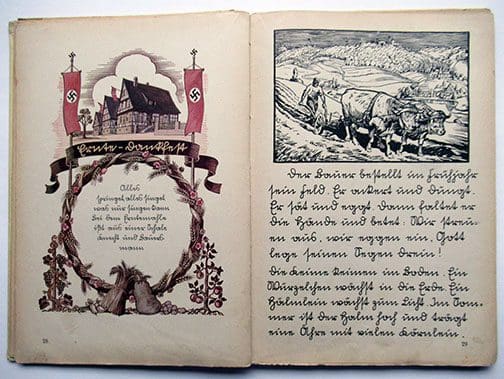 Ernte-Dankfest
Alles
springet, alles singet
was nur singen kann
Bei dem Erntemahle
ißt aus einer Schale
Knecht und Bauers-
mann
28
Der Bauer bestellt im Frühjahr
sein Feld. Er ackert und düngt.
Er sät und eggt. Dann faltet er
die Hände und betet: Wir streu-
en aus, wir eggen ein, Gott
lege seinen Segen drein!
Die Keime keimen im Boden. Ein
Würzelchen wächst in die Erde. Ein
Hälmlein wächst zum Licht. Im Som-
mer ist der Halm hoch und trägt
eine Ähre mit vielen Körnlein.
29